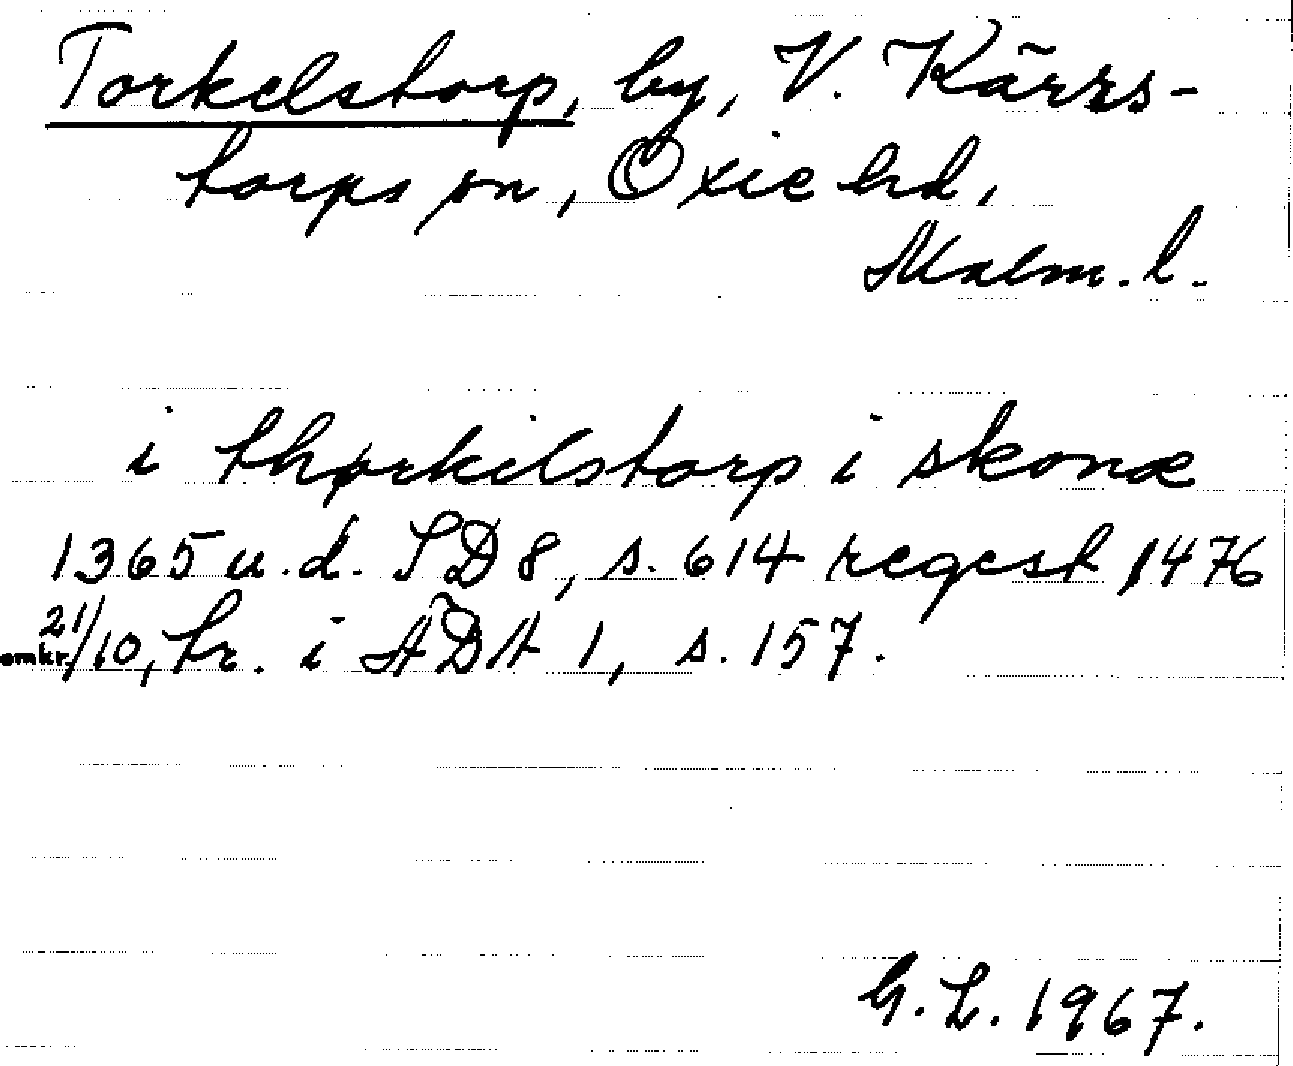 Torkelstorp, by, V. Kärrs-
torps sn, Oxie hd,
Malm. l.
i thørkilstorp i skonæ
1365 u.d. SD 8, s. 614 regest 1476
omkr. 21/10, tr. i ÄDA 1, s. 157.
G. L. 1967.